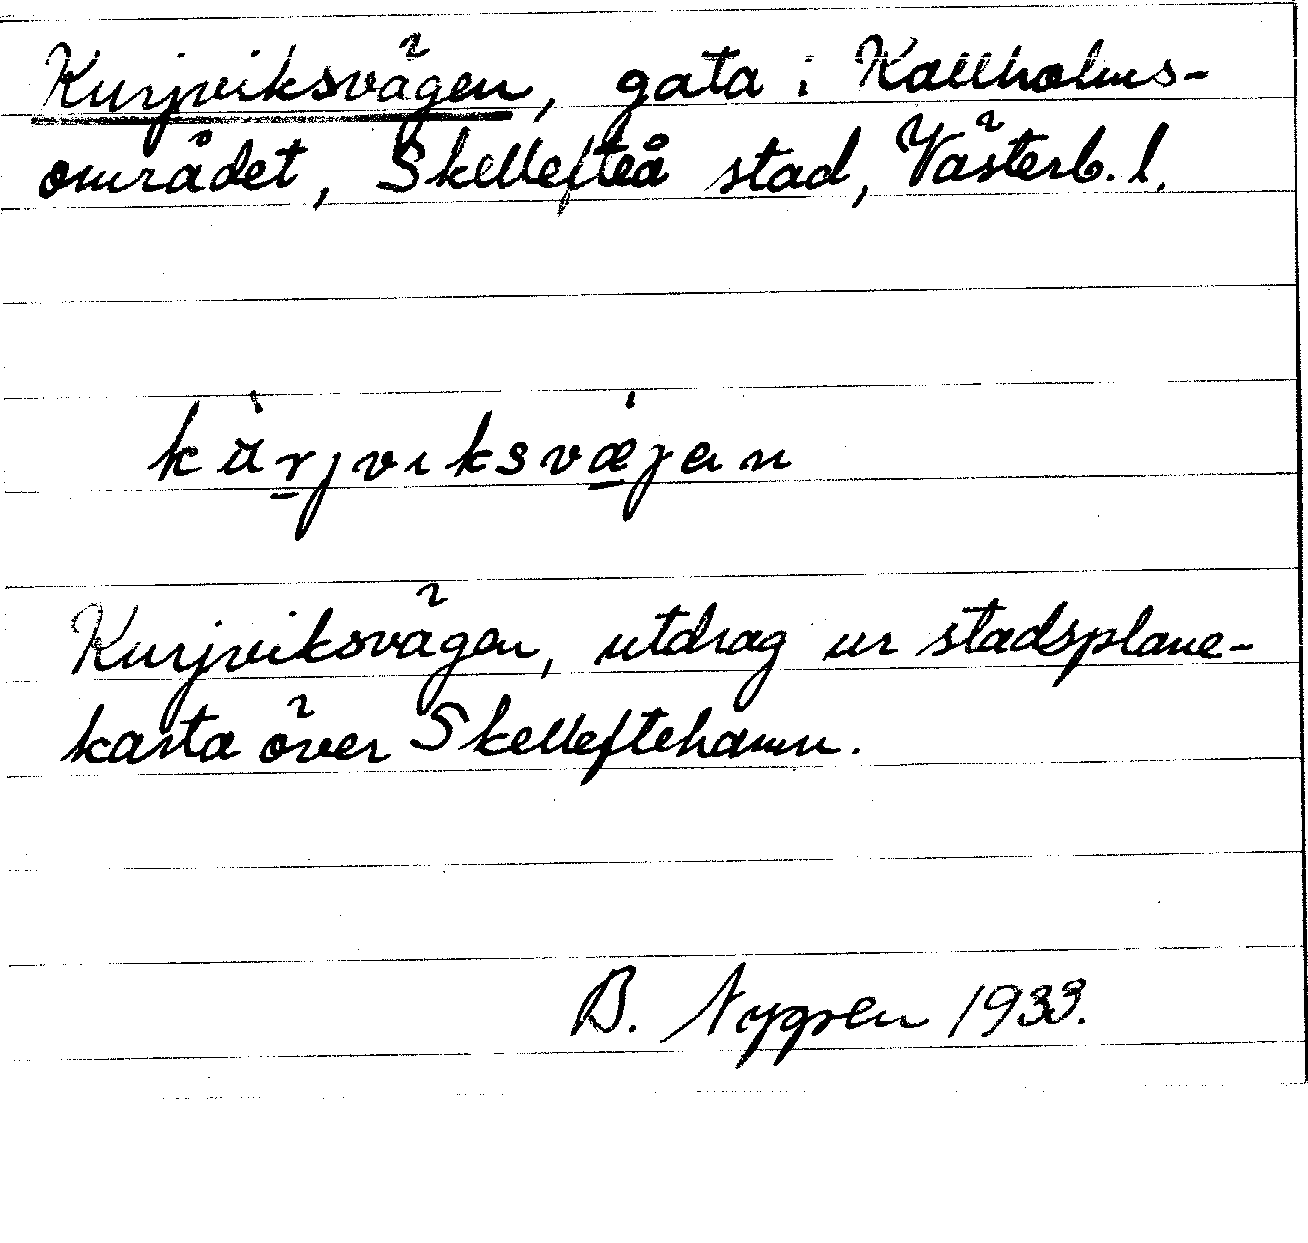 Kurjviksvägen, gata i Kallholms-
området, Skellefteå stad, Västerb. l.
kùrjviksvæ̀jen
Kurjviksvägen, utdrag ur stadsplane-
karta över Skelleftehamn.
B. Nygren 1933.